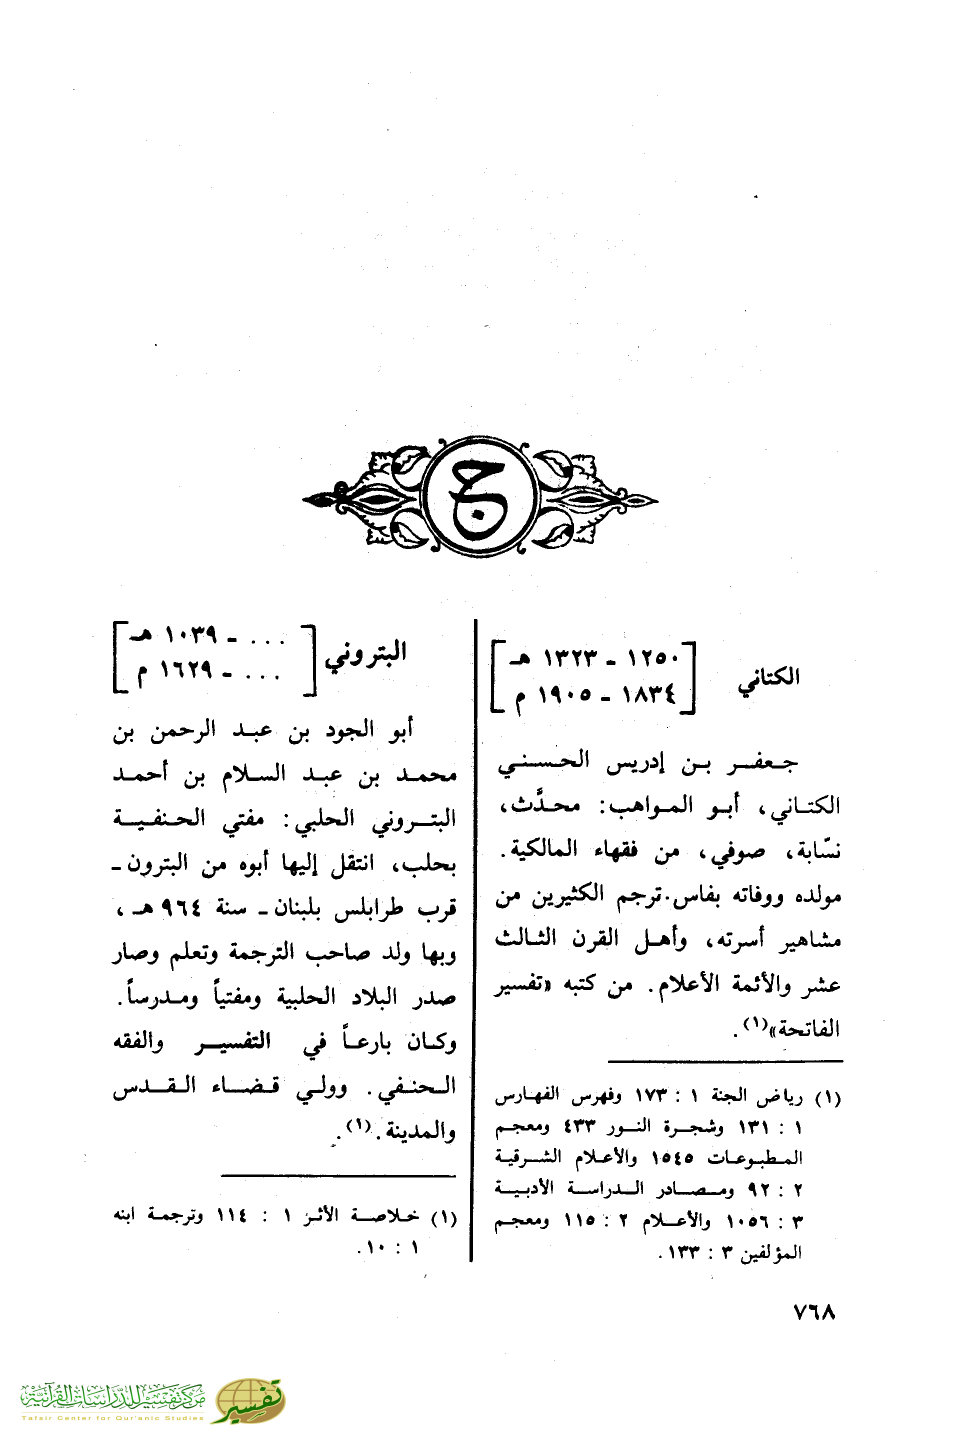 ج
الكتاني
١٢٥٠ ـ ١٣٢٣ هـ
١٨٣٤ ـ ١٩٠٥ م
جعفر بن إدريس الحسني
الكتاني، أبو المواهب: محدَّث،
نسّابة، صوفي، من فقهاء المالكية.
مولده ووفاته بفاس. ترجم الكثيرين من
مشاهير أسرته، وأهل القرن الثالث
عشر والأئمة الأعلام. من كتبه «تفسير
الفاتحة»(١).
(١) رياض الجنة ١ : ١٧٣ وفهرس الفهارس
١ : ١٣١ وشجرة النور ٤٣٣ ومعجم
المطبوعات ١٥٤٥ والأعلام الشرقية
٢ : ٩٢ ومصادر الدراسة الأدبية
٣ : ١٠٥٦ والأعلام ٢ : ١١٥ ومعجم
المؤلفين ٣ : ١٣٣.
البتروني
... ـ ١٠٣٩ هـ
... ـ ١٦٢٩ م
أبو الجود بن عبد الرحمن بن
محمد بن عبد السلام بن أحمد
البتروني الحلبي: مفتي الحنفية
بحلب، انتقل إليها أبوه من البترون ـ
قرب طرابلس بلبنان ـ سنة ٩٦٤ هـ ،
وبها ولد صاحب الترجمة وتعلم وصار
صدر البلاد الحلبية ومفتياً ومدرساً.
وكان بارعاً في التفسير والفقه
الحنفي. وولي قضاء القدس
والمدينة.(١).
(١) خلاصة الأثر ١ : ١١٤ وترجمة ابنه
١ : ١٠.
٧٦٨
مركز تفسير للدراسات القرآنية
Tafsir Center for Qur'anic Studies
تفسير